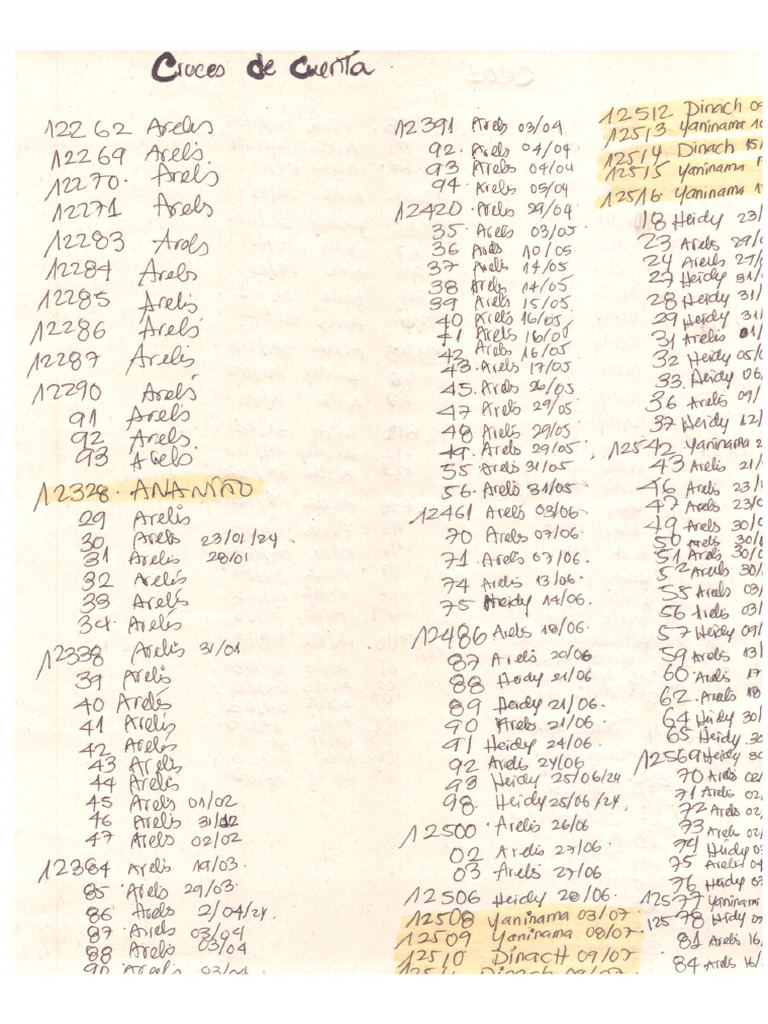 Cruces de Cuenta
12262 Arelis
12269 Arelis.
12270. Arelis
12271 Arelis
12283 Arelis
12284 Arelis
12285 Arelis
12286 Arelis
12287 Arelis
12290 Arelis
91 Arelis
92 Arelis.
93 Arelis
12328. ANANIÑO
29 Arelis
30 Arelis 23/01/24.
31 Arelis 28/01
32 Arelis
33 Arelis
34. Arelis
12338 Arelis 31/01
39 Arelis
40 Arelis
41 Arelis
42 Arelis
43 Arelis
44 Arelis
45 Arelis 01/02
46 Arelis
47 Arelis 02/02
12384 Arelis 19/03.
85 Arelis 29/03.
86 Arelis 2/04/24.
87. Arelis 03/04
88 Arelis 03/04
90 Arelis 03/04
12391 Arelis 03/04
92. Arelis 04/04.
93 Arelis 04/04
94. Arelis 05/04
12420. Arelis 29/04.
35. Arelis 03/05
36 Arelis 10/05.
37 Arelis 14/05
38 Arelis 14/05.
39 Arelis 15/05.
40 Arelis 16/05
41 Arelis 16/05
42 Arelis 16/05
43. Arelis 17/05
45. Arelis 26/05
47 Arelis 29/05
48 Arelis 29/05
49. Arelis 29/05
55 Arelis 31/05
56. Arelis 31/05
12461 Arelis 03/06
70 Arelis 07/06.
71. Arelis 07/06.
74 Arelis 13/06.
75 Heidy 14/06.
12486 Arelis 18/06.
87 Arelis 20/06
88 Heidy 21/06
89 Heidy 21/06.
90 Arelis 21/06.
91 Heidy 24/06.
92 Arelis 24/06
93 Heidy 25/06/24
98. Heidy 25/06/24.
12500. Arelis 26/06
02 Arelis 27/06.
03 Arelis 27/06
12506 Heidy 28/06.
12508 Yaninama 03/07.
12509 Yaninama 08/07.
12510 Dinach 09/07
Dinach 09/07
12512 Dinach
12513 Yaninama
12514 Dinach 15/
12515 Yaninama
12516 Yaninama
18 Heidy 23/
23 Arelis 29/
24 Arelis 29/
27 Heidy 31/
28 Heidy 31/
29 Heidy 31/
31 Arelis 01/
32 Heidy 05/
33. Heidy 06/
36 Arelis 09/
37 Heidy 12/
12542 Yaninama 2
43 Arelis 21/
46 Arelis 23/
47 Arelis 23/
49 Arelis 30/
50 Arelis 30/
51 Arelis 30/
52 Arelis 30/
55 Arelis 03/
56 Arelis 03/
57 Heidy 09/
59 Arelis 13/
60 Arelis 17
62. Arelis 18
64 Heidy 30/
65 Heidy. 30
12569 Heidy 30
70 Arelis 02/
71 Arelis 02/
72 Arelis 02/
73 Arelis 02/
74 Heidy 03
75 Arelis 04
76 Heidy 03
12577 Yaninama
12578 Heidy 09
81 Arelis 16/
84 Arelis 16/